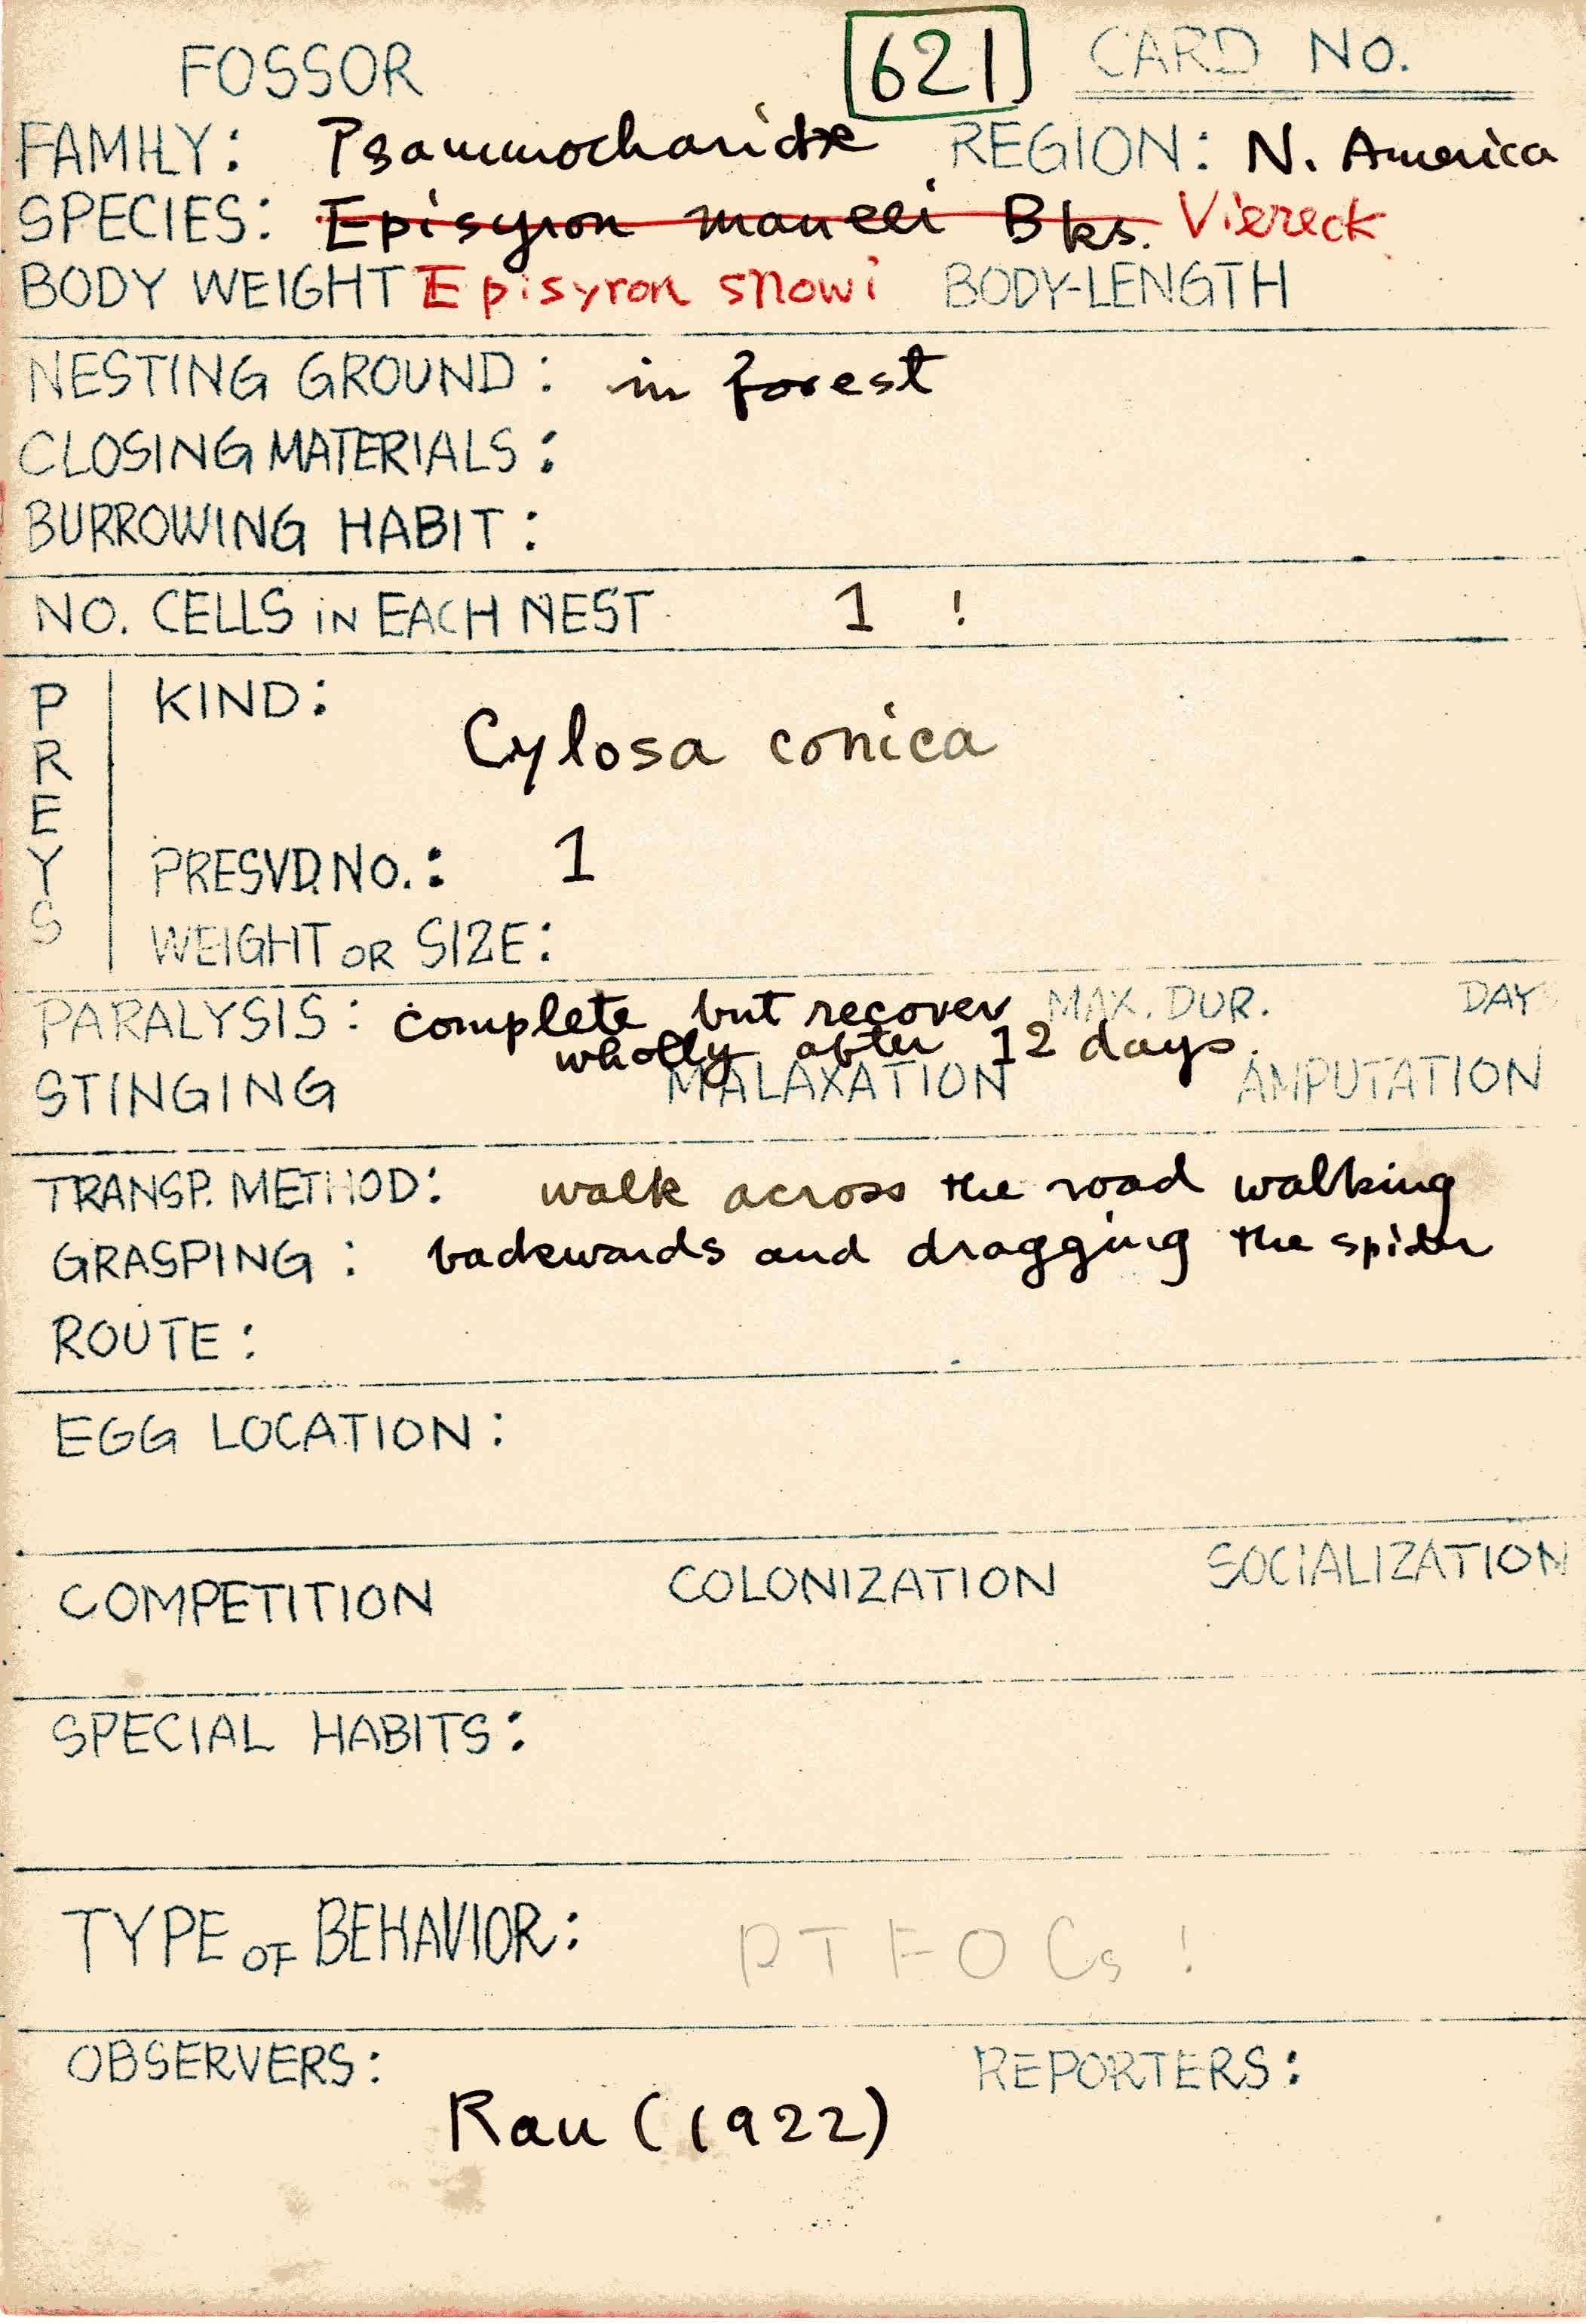 FOSSOR 621 CARD No.
FAMILY: Psammocharidæ REGION: N. America
SPECIES: Episyron maneei Bks. Viereck
BODY WEIGHT Episyron snowi BODY-LENGTH
NESTING GROUND: in forest
CLOSING MATERIALS:
BURROWING HABIT:
NO. CELLS iN EACH NEST 1 !
PREYS
KIND:
Cylosa conica
PRESVD.NO.: 1
WEIGHT OR SIZE:
PARALYSIS: complete but recover MAX. DUR. DAY
wholly after 12 days.
STINGING MALAXATION AMPUTATION
TRANSP. METHOD: walk across the road walking
GRASPING: backwards and dragging the spider
ROUTE:
EGG LOCATION:
COMPETITION COLONIZATION SOCIALIZATION
SPECIAL HABITS:
TYPE OF BEHAVIOR: PTFOCs!
OBSERVERS: REPORTERS:
Rau (1922)